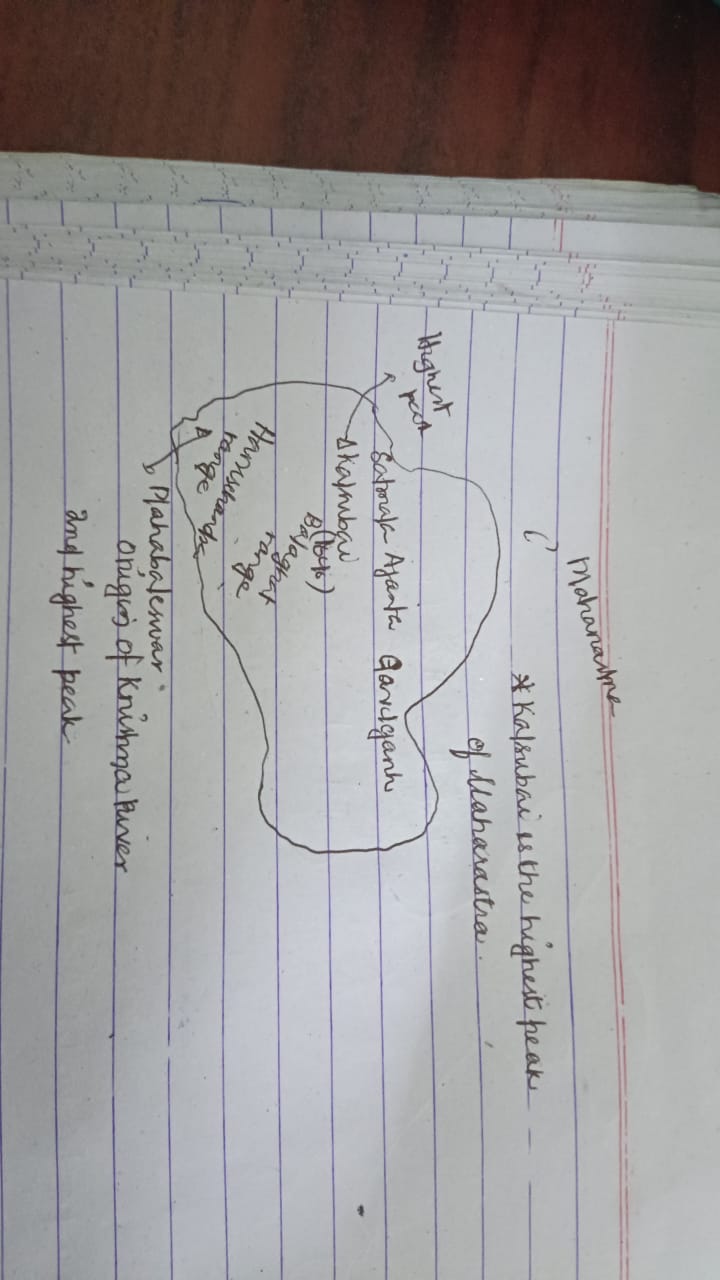 Maharastra
* Kalsubai is the highest peak
of Maharastra.
Highest
peak
Satmala Ajanta Gavilgarh
Kalsubai
(Peak)
Balaghat
range
Harischandra
range
Mahabaleswar
origin of Krishna River
2nd highest peak